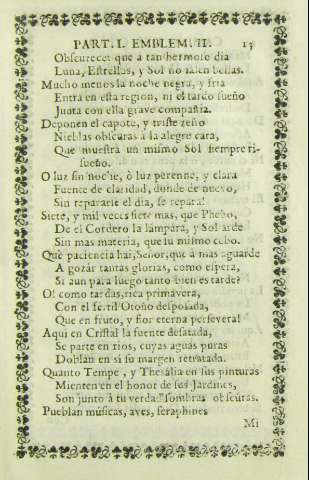 PART. I. EMBLEM. II. 13
Obscurecer que a tan hermoso dia
Luna, Estrellas, y Sol no salen bellas.
Mucho menos la noche negra, y fria
Entra en esta region, ni el tardo sueño
Junta con ella grave compañia.
Deponen el capote, y triste zeño
Nieblas obscuras à la alegre cara,
Que muestra un mismo Sol siempre ri-
sueño.
O luz sin noche, ò luz perenne, y clara
Fuente de claridad, donde de nuevo,
Sin repararse el dia, se repara!
Siete, y mil veces siete mas, que Phebo,
De el Cordero la lampara, y Sol arde
Sin mas materia, que su mismo cebo.
Què paciencia hai, Señor, que à mas aguarde
A gozár tantas glorias, como espera,
Si aun para luego tanto bien es tarde?
O! como tardas, rica primavera,
Con el fertil Otoño desposada,
Que en fruto, y flor eterna persevera!
Aqui en Cristal la fuente desatada,
Se parte en rios, cuyas aguas puras
Doblan en sì su margen retratada.
Quanto Tempe, y Thesalia en sus pinturas
Mienten en el honor de sus Jardines,
Son junto à tu verdad sombras obscuras.
Pueblan músicas, aves, seraphines
Mi